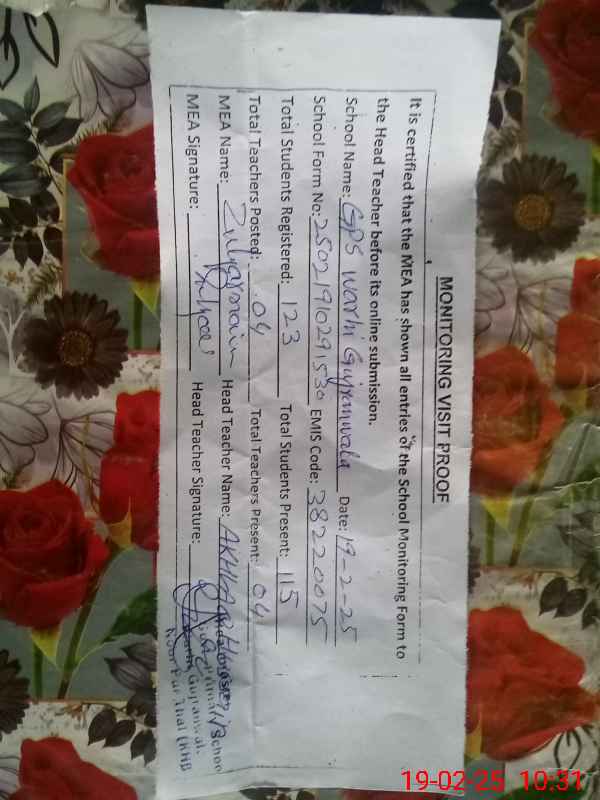 MONITORING VISIT PROOF
It is certified that the MEA has shown all entries of the School Monitoring Form to
the Head Teacher before its online submission.
School Name: GPS Warhi Gujranwala Date: 19-2-25
School Form No: 25021910291530 EMIS Code: 38220075
Total Students Registered: 123 Total Students Present: 115
Total Teachers Posted: 04 Total Teachers Present: 04
MEA Name: Head Teacher Name:
MEA Signature: Head Teacher Signature:
19-02-25 10:31